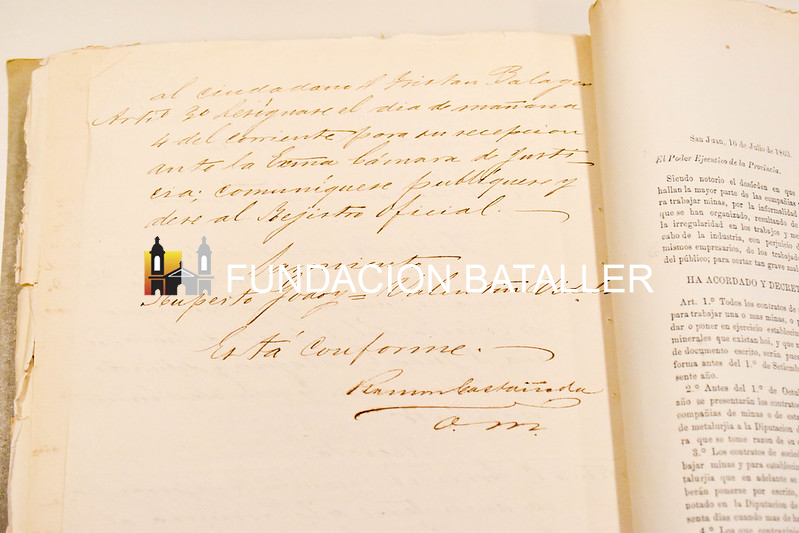 al ciudadano D Tristan Balaga
Art.º 3º Desígnase el dia de mañana
4 del corriente para su recepcion
ante la Exma Cámara de Justi
cia; comuníquese publíquese y
dese al Registro Oficial. —
Sarmiento
FUNDACION BATALLER
Ruperto Godoy = Valentin
Está conforme. —
Ramon Castañeda
O. M.
San Juan, 16 de Julio de 1863.
El Poder Ejecutivo de la Provincia.
Siendo notorio el desórden en que
hallan la mayor parte de las compañias
ra trabajar minas, por la informalidad
que se han organizado, resultando de
la irregularidad en los trabajos y me
cabo de la industria, con perjuicio d
mismos empresarios, de los trabajad
del público; para cortar tan grave mal
HA ACORDADO Y DECRET
Art. 1.º Todos los contratos de
para trabajar una o mas minas, o
dar o poner en ejercicio establecim
minerales que existan hoi, y que n
de documento escrito, serán pues
forma antes del 1.º de Setiemb
sente año.
2.º Antes del 1.º de Octul
año se presentarán los contratos
compañias de minas o de estal
de metalurjia a la Diputacion d
ra que se tome razon de su c
3.º Los contratos de socied
bajar minas y para establecim
talurjia que en adelante se
berán ponerse por escrito,
notado en la Diputacion de
senta dias cuando mas de h
4.º Los que contravinie